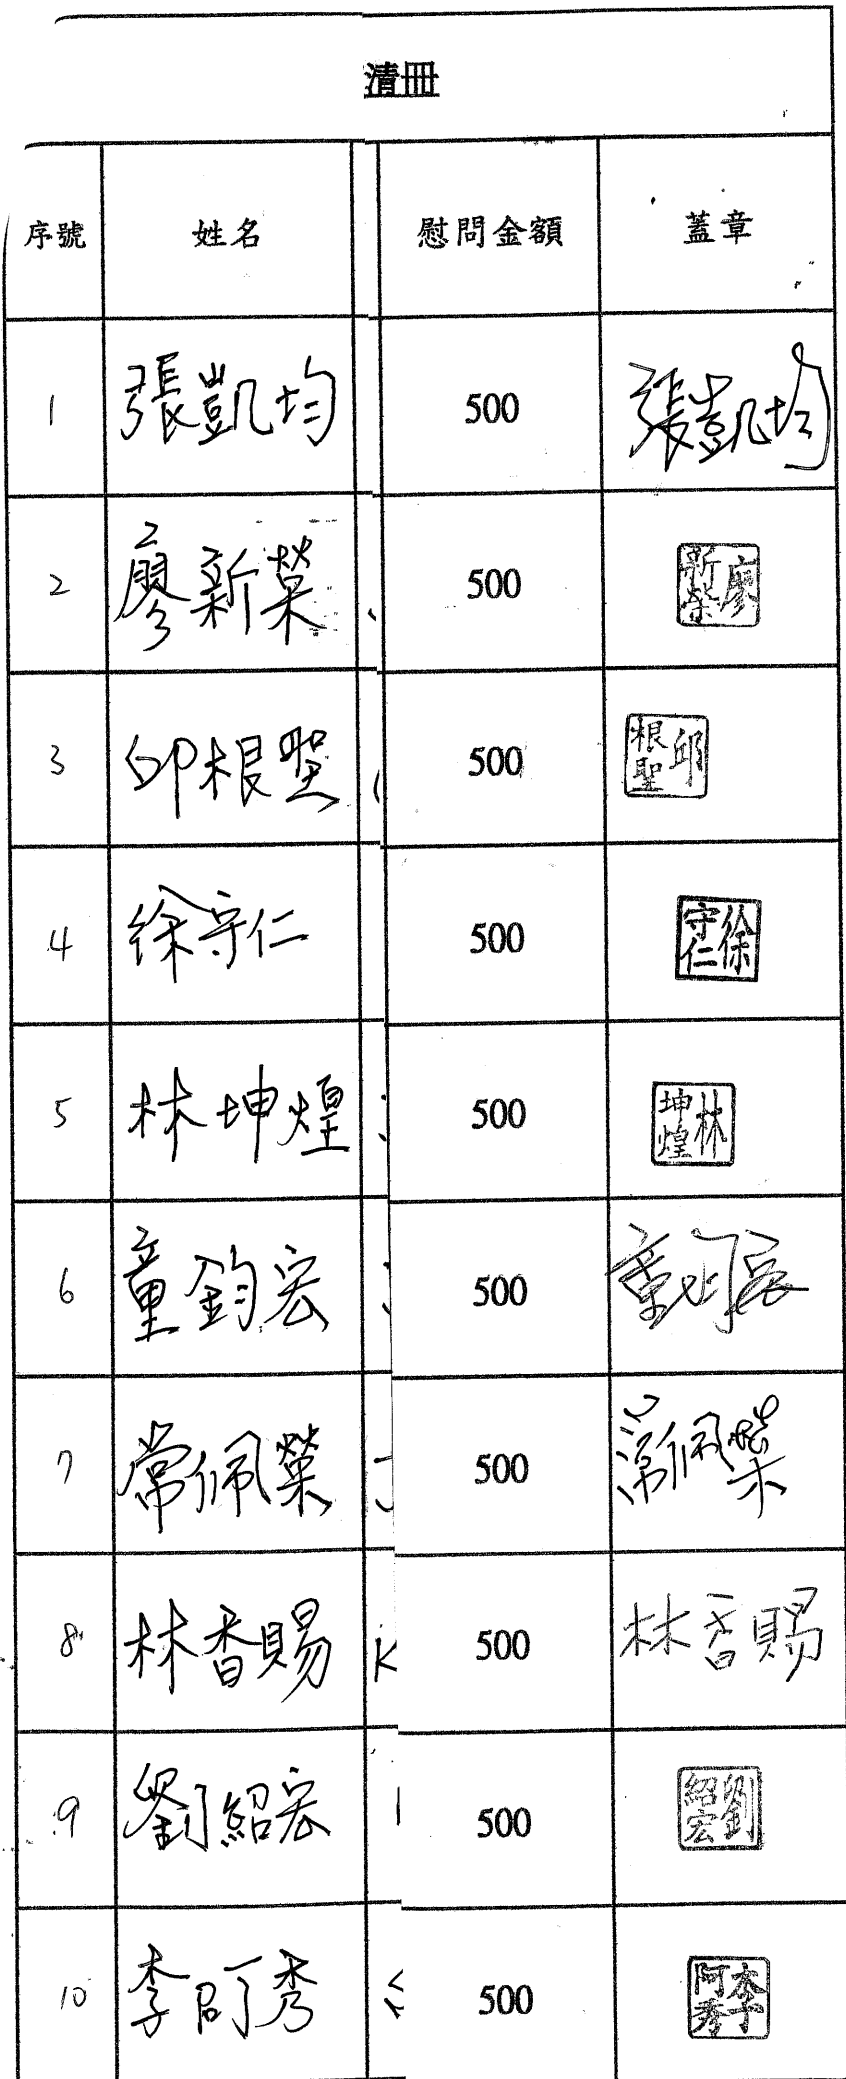 清冊
序號 姓名 慰問金額 蓋章
1 張凱均 500 張凱均
2 廖新榮 500 廖新榮
3 邱根聖 500 邱根聖
4 徐守仁 500 徐守仁
5 林坤煌 500 林坤煌
6 童鈞宏 500 童鈞宏
7 常佩榮 500 常佩榮
8 林香賜 500 林香賜
9 劉紹宏 500 劉紹宏
10 李阿秀 500 李阿秀